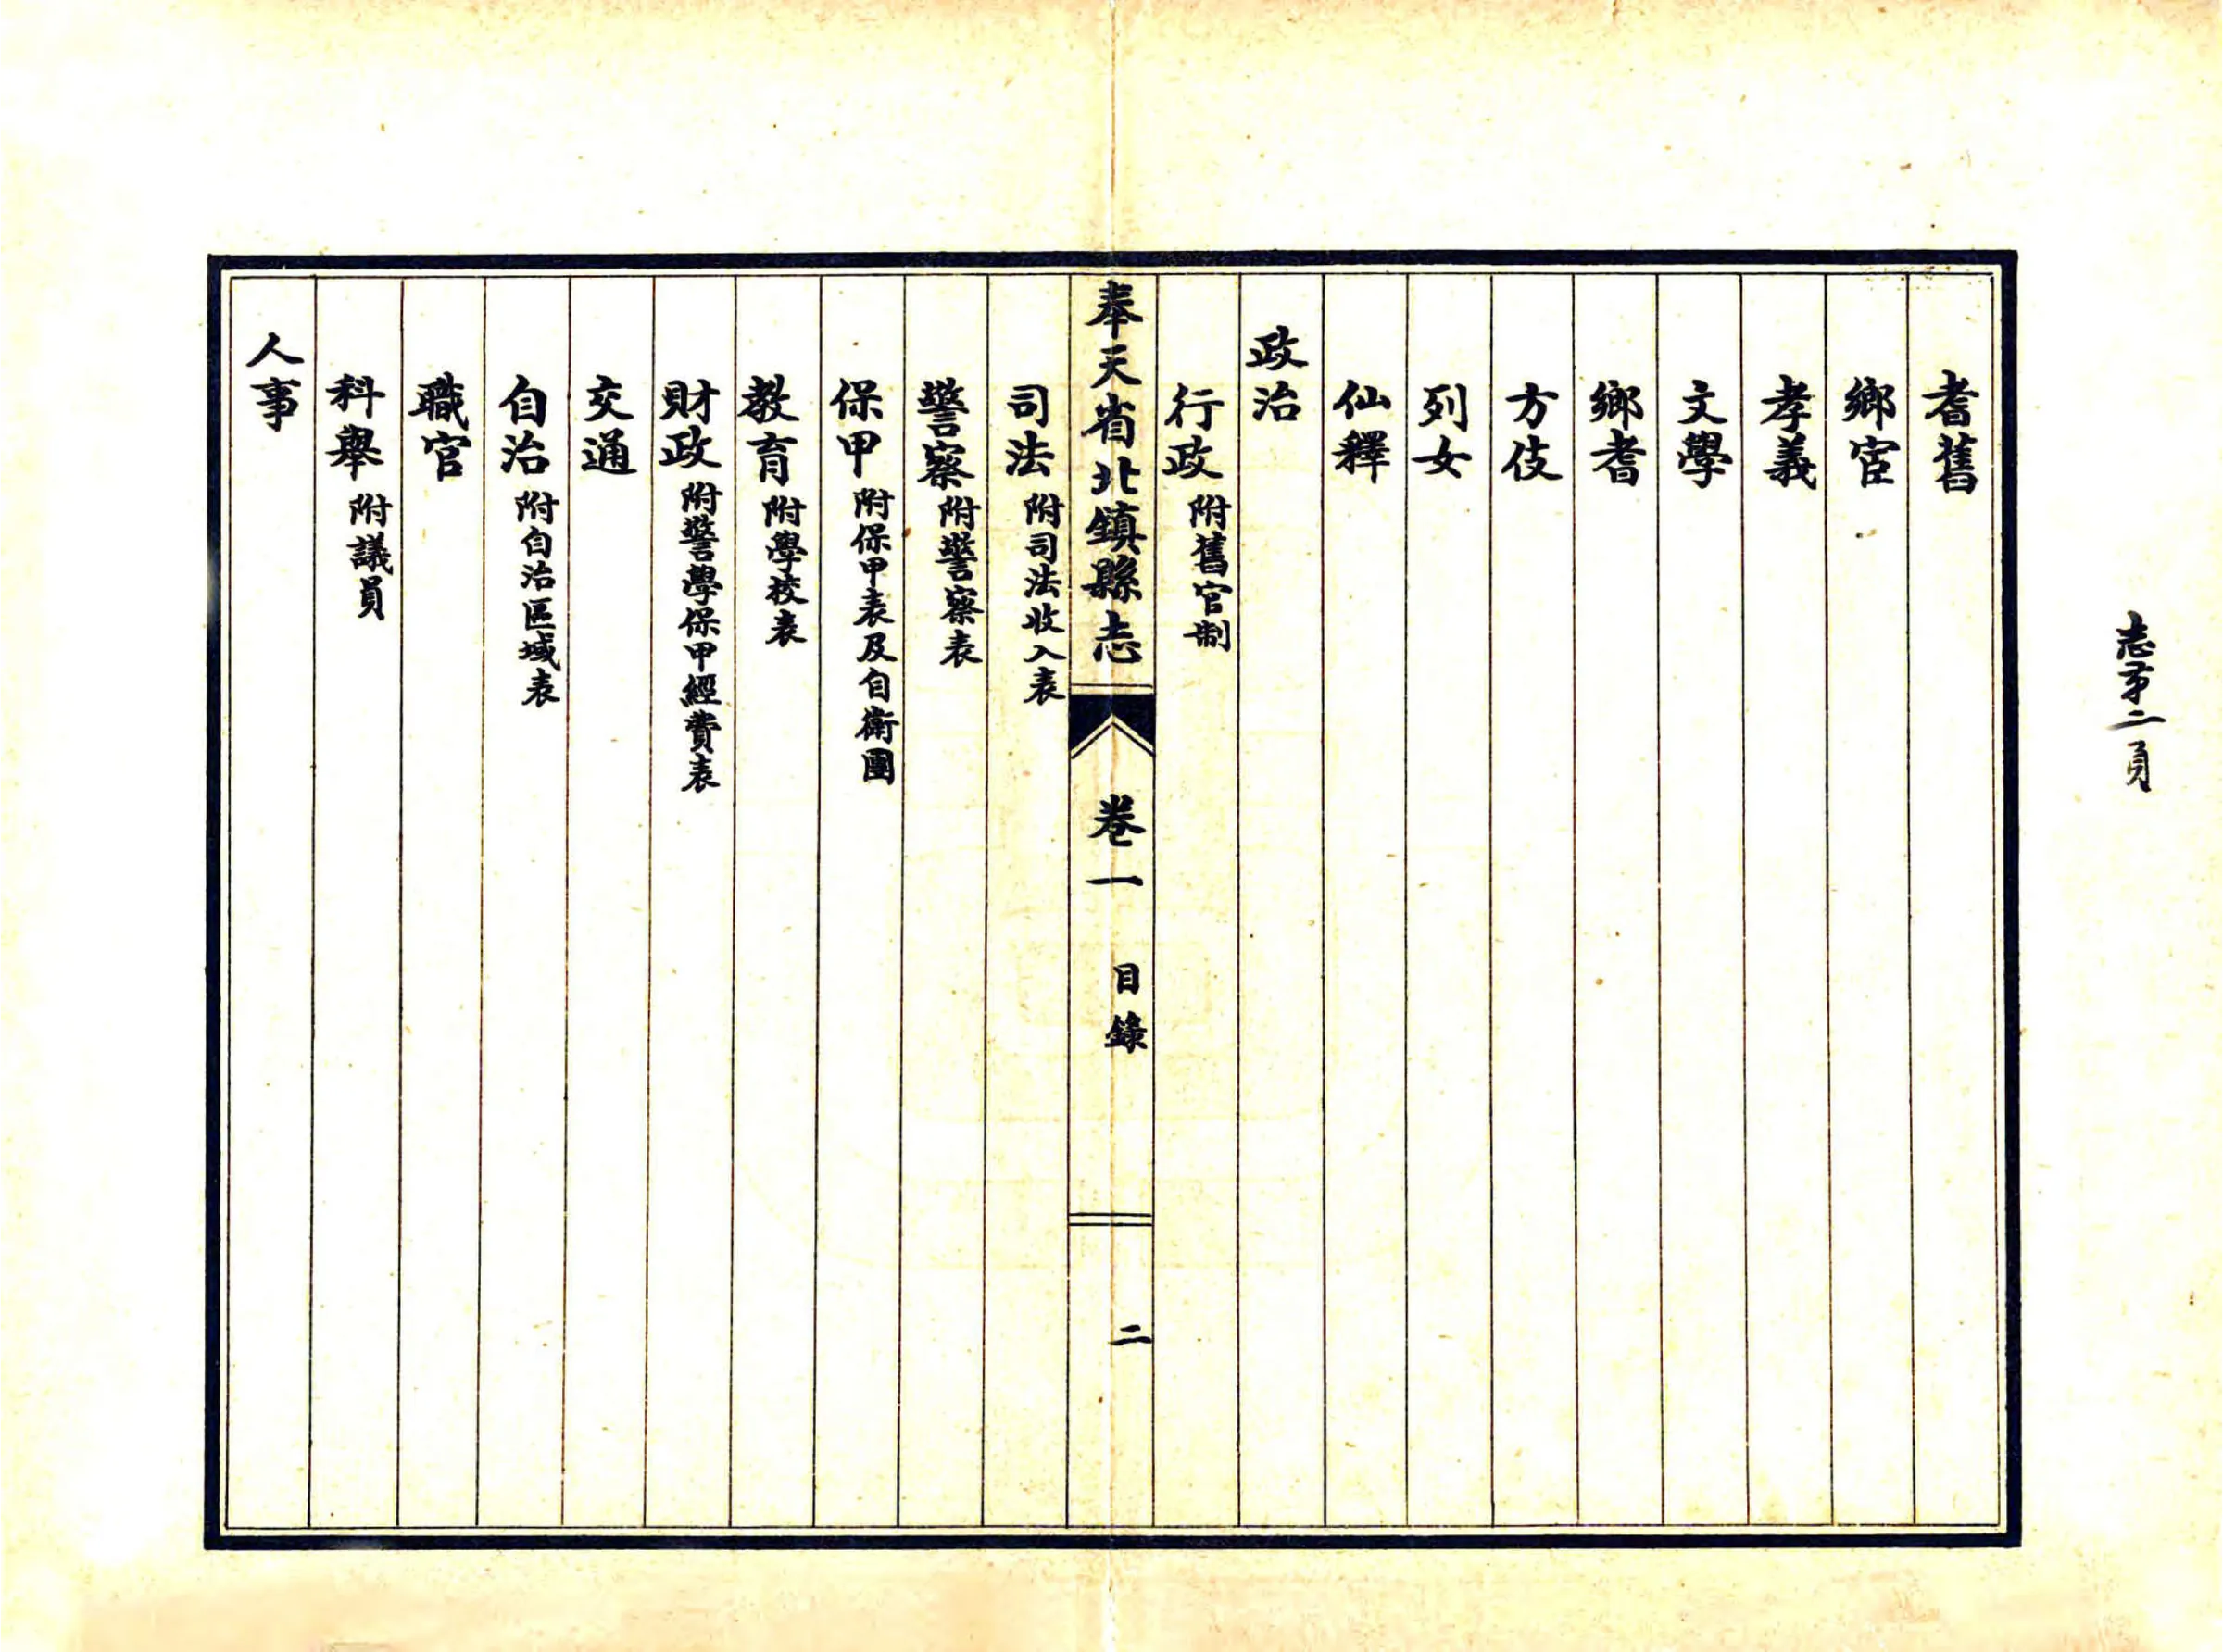 耆舊
鄉宦
孝義
文學
鄉耆
方伎
列女
仙釋
政治
行政 附舊官制
奉天省北鎮縣志 卷一 目錄 二
司法 附司法收入表
警察 附警察表
保甲 附保甲表及自衛團
教育 附學校表
財政 附警學保甲經費表
交通
自治 附自治區域表
職官
科舉 附議員
人事
志第二頁